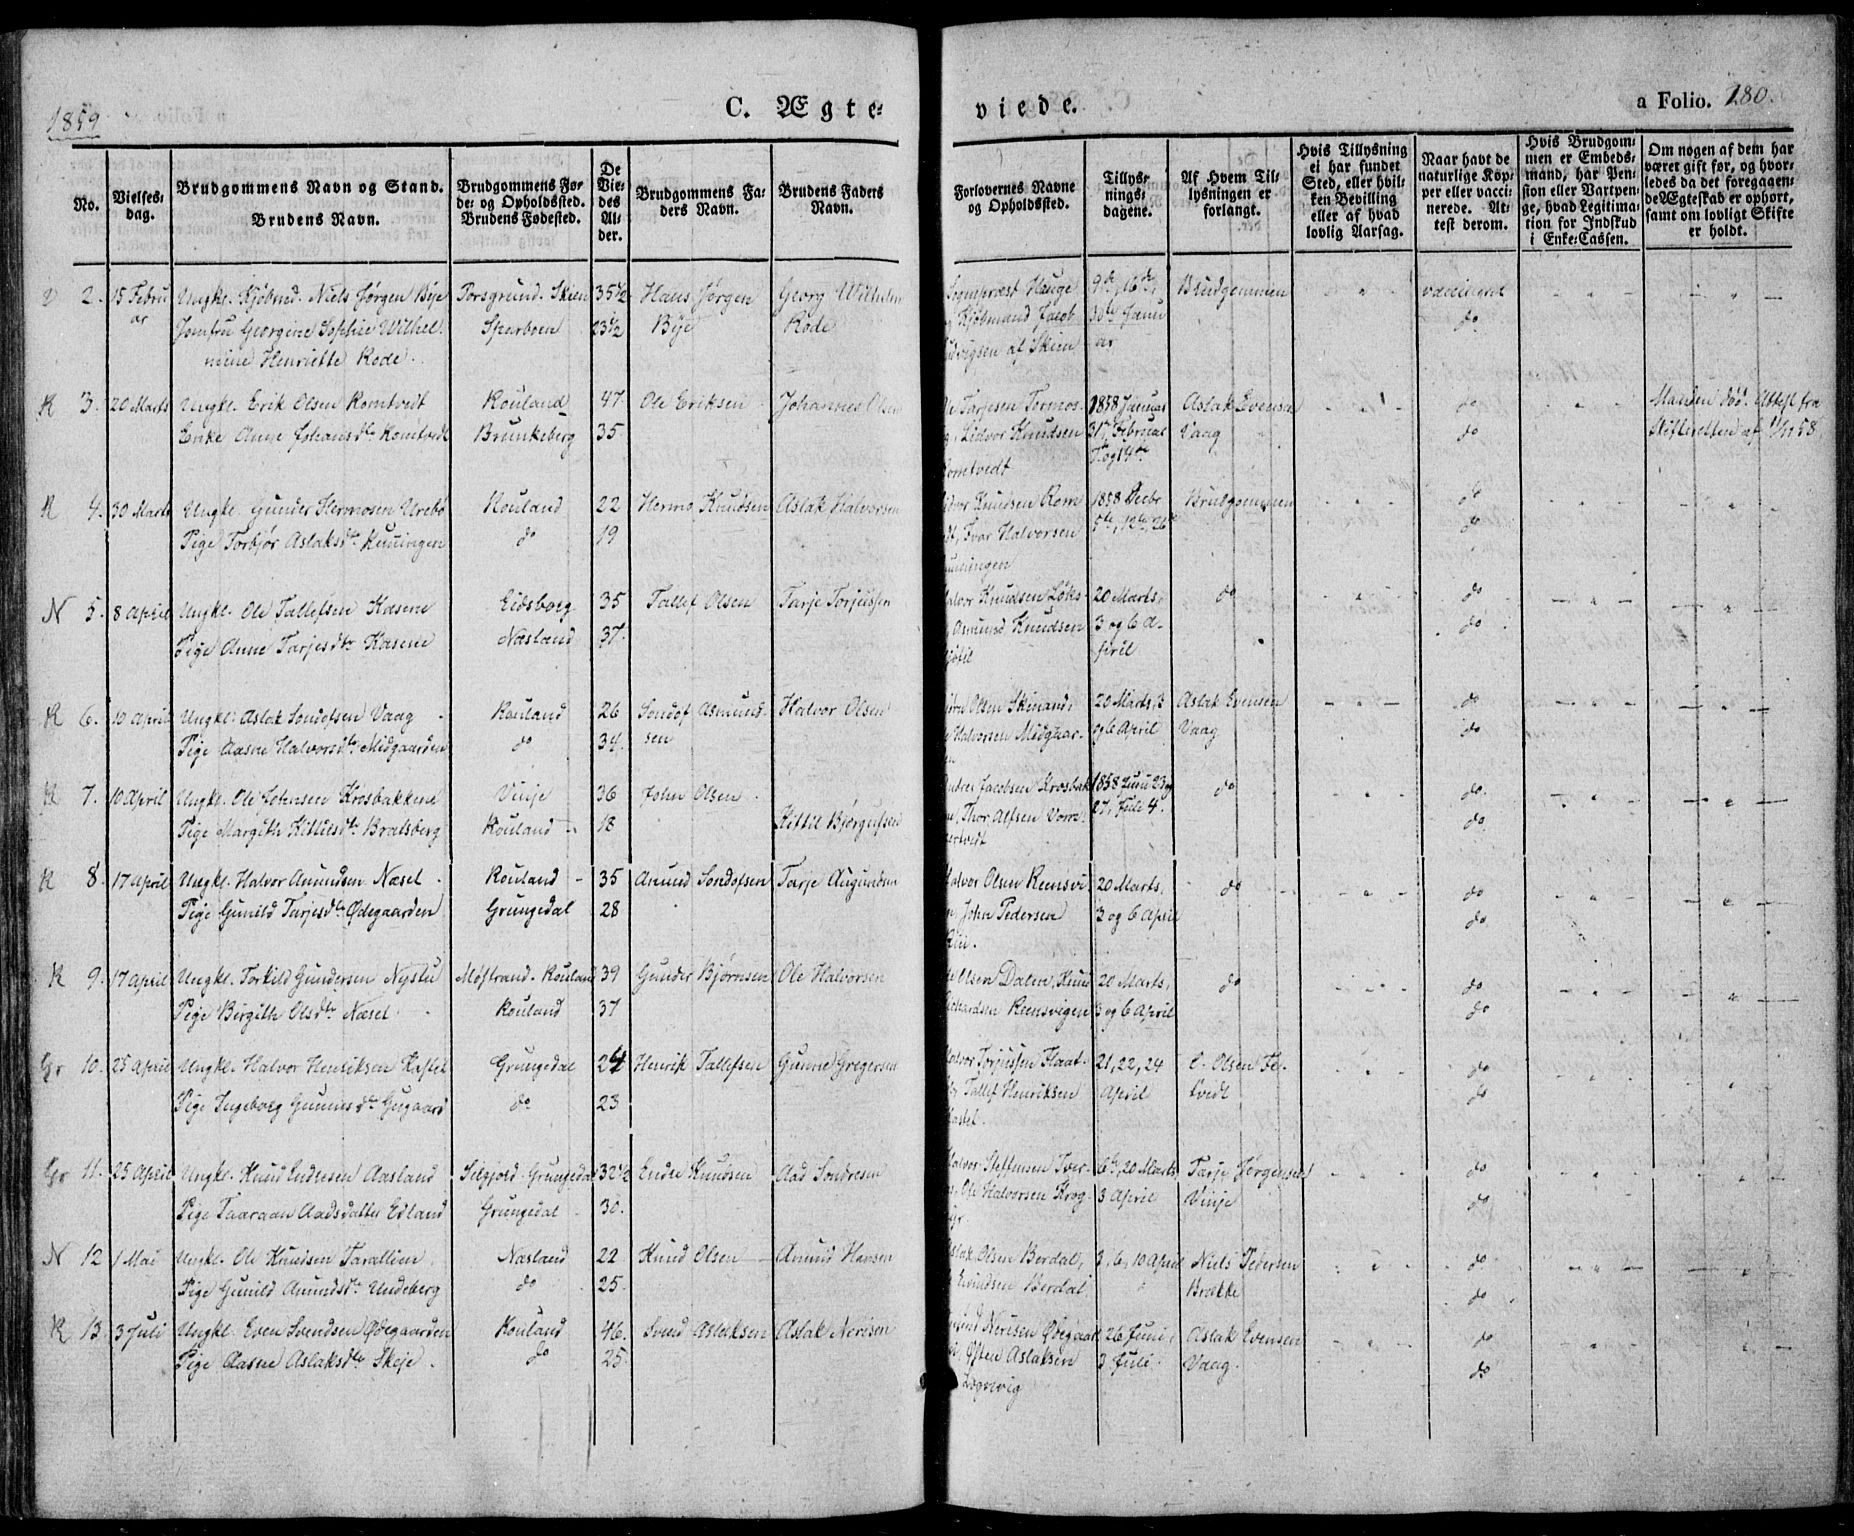 1859
C. Ægte-
viede.
a Folio. 180.
No.
Vielses-
dag.
Brudgommens Navn og Stand.
Brudens Navn.
Brudgommens Fø-
de- og Opholdssted.
Brudens Fødested.
De
Vie-
des
Al-
der.
Brudgommens Fa-
ders Navn.
Brudens Faders
Navn.
Forlovernes Navne
og Opholdssted.
Tillys-
nings-
dagene.
Af Hvem Til-
lysningen er
forlangt.
Hvis Tillysning
ei har fundet
Sted, eller hvil-
ken Bevilling
eller af hvad
lovlig Aarsag.
Naar havt de
naturlige Kop-
per eller vacci-
nerede. At-
test derom.
Hvis Brudgom-
men er Embeds-
mand, har Pen-
sion eller Vartpen-
ge, hvad Legitima-
tion for Indskud
i Enke-Cassen.
Om nogen af dem har
været gift før, og hvor-
ledes da det foregaaen-
de Ægteskab er ophørt,
samt om lovligt Skifte
er holdt.
V 2. 15 Febru Ungkl. Kjøbmd. Niels Jørgen Bye Porsgrund. Skien 35 1/2 Hans Jørgen Georg Wilhelm
ar Jomfru Georgine Sophie Wilhel- Sparboen 23 1/2 Bye Rode
mine Henriette Rode.
Sognepræst Hauge 9de, 16de, Brudgommen " " vaccineret " " "
Kjøbmand Jacob 30te Janu do
Ludvigsen af Skien ar
R 3. 20 Marts Ungkl. Erik Olsen Romtvedt Rouland 47. Ole Eriksen Johannes Olsen
Enke Anne Johansdtr Romtvedt Brunkeberg 35.
Ole Tarjesen Formos 1858 Januar Aslak Evensen " " do " " Manden død. Attest fra
Lidvor Knudsen 31te Februar Vaag do Skifteretten af 11/10 58.
Romtvedt 7 og 14de
R 4. 30 Marts Ungkl. Gunder Hermosen Urebø Rouland 22 Hermo Knudsen Aslak Halvorsen
Pige Torbjør Aslaksdtr Kuningen do 19
Lidvor Knudsen Rom 1858 Decbr Brudgommen " " do " "
Ivar Halvorsen 5te, 12te, 26de do
Kuningen
N 5. 8 April Ungkl. Ole Tallefsen Kasene Eidsborg 35 Tallef Olsen Tarje Torjussen
Pige Anne Tarjesdtr Kasene Næsland 37.
Halvor Knudsen Løks 20 Marts, do " " do " "
Asmund Knudsen 3 og 6 A- do
pril
R 6. 10 April Ungkl. Aslak Sondofsen Vaag Rouland 26 Sondof Asmund- Halvor Olsen
Pige Aasne Halvorsdtr Midgaarden do 34. sen
Olsen Skinand, 20 Marts, 3 Aslak Evensen " " do " "
Halvorsen Midgaar- og 6 April Vaag do
en
R 7. 10 April Ungkl. Ole Johnsen Krosbakkene Vinje 36 John Olsen
Pige Margith Kittilsdtr Bratsberg Rouland 18 Kittil Bjørgufsen
Anders Jacobsen Krosbak 1858 Juni 23 og do " " do " "
Thor Alfsen Vom- 27, Juli 4. do
ertvedt
R 8. 17 April Ungkl. Halvor Amundsen Næsel Rouland 35 Amund Sondofsen Tarje Augundsen
Pige Gunild Tarjesdtr Ødegaarden Grungedal 28
Halvor Olsen Reensvi- 20 Marts, do " " do " "
John Pedersen 3 og 6 April do
Rui.
R 9. 17 April Ungkl. Torkild Gundersen Nystu Møstrand. Rouland 39 Gunder Bjørnsen Ole Halvorsen
Pige Birgith Olsdtr Næsel Rouland 37
Olsen Dalen, Knud 20 Marts, do " " do " "
Richardsen Reensvigen 3 og 6 April do
Gr 10. 25 April Ungkl. Halvor Henriksen Kastel Grungedal 24 Henrik Tallefsen Gunne Gregersen
Pige Ingeborg Gunnesdtr Gugaard do 23
Halvor Torjussen Flaat- 21, 22, 24 O. Olsen Fe- " " do " "
Tallef Henriksen April tvedt do
Kastel.
Gr 11. 25 April Ungkl. Knud Endresen Aasland Silgjord. Grungedal 32 1/2 Endre Knudsen Aad Sondresen
Pige Taaraan Aadsdatter Edland Grungedal 30.
Halvor Steffensen Tver- 6te, 20 Marts, Tarje Jørgensen " " do " "
Ole Halvorsen Krog- 3 April Vinje do
N 12 1 Mai Ungkl. Ole Knudsen Taraltlien Næsland 22 Knud Olsen Amund Hansen
Pige Gunild Amundsdtr Undeberg do 25.
Aslak Olsen Berdal, 3, 6, 10 April Niels Pedersen " " do " "
Evindsen Berdal Brække do
R 13. 3 Juli Ungkl. Even Svendsen Ødegaarden Rouland 46. Svend Aslaksen Aslak Nerisen
Pige Aasne Aslaksdtr Skeje. do 25.
Nerisen Ødegaar 26 Juni, Aslak Evensen " " do " "
Østen Aslaksen 3 Juli. Vaag. do
Lognvig